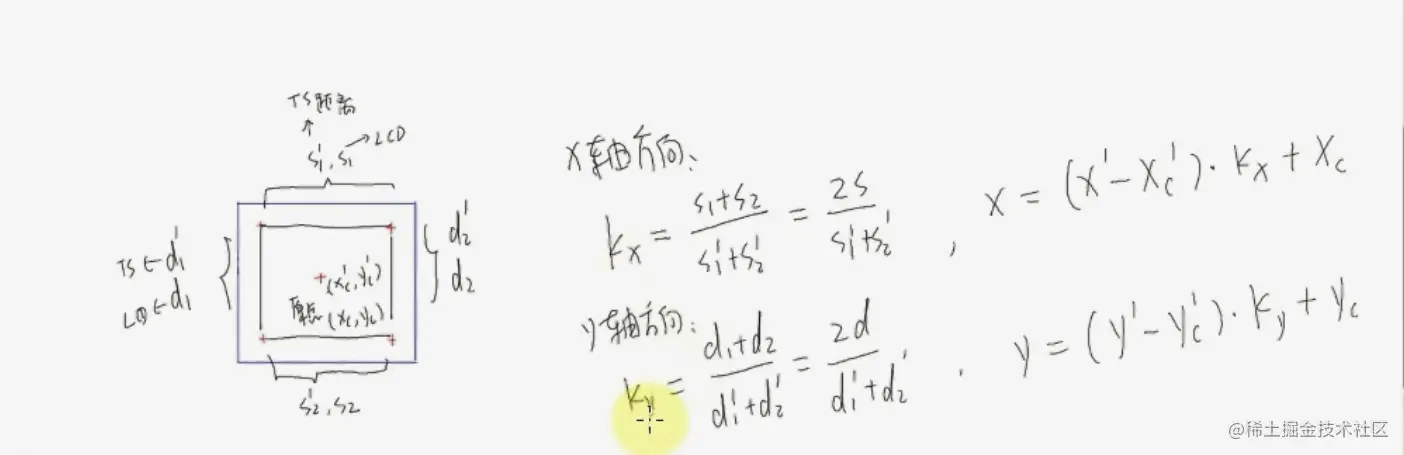 TS距离
s₁', s₁ → LCD
TS ← d₁'
LCD ← d₁
d₂'
d₂
(x_c', y_c')
原点 (x_c, y_c)
s₂', s₂
X轴方向:
k_x = (s₁+s₂)/(s₁'+s₂') = 2s/(s₁'+s₂') , x = (x' - x_c')·k_x + x_c
y轴方向:
k_y = (d₁+d₂)/(d₁'+d₂') = 2d/(d₁'+d₂') . y = (y' - y_c')·k_y + y_c
@稀土掘金技术社区